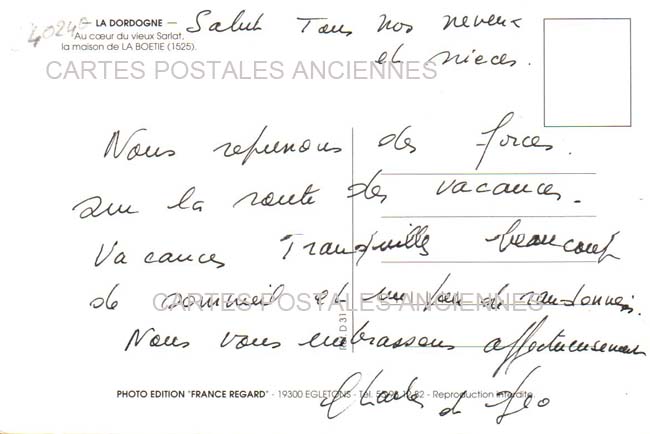 4024
— LA DORDOGNE —
Au cœur du vieux Sarlat,
la maison de LA BOETIE (1525).
Salut Tous nos neveux
et nieces.
CARTES POSTALES ANCIENNES
Nous reprenons des forces.
sur la route des vacances.
Vacances Tranquilles beaucoup
de sommeil et un peu de randonnées.
CARTES POSTALES ANCIENNES
Nous vous embrassons affectueusement
PHOTO EDITION "FRANCE REGARD" - 19300 EGLETONS - Tél. - Reproduction interdite.
Charles